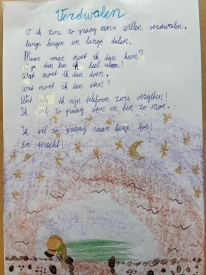 Verdwalen
O ik zou zo graag eens willen verdwalen,
langs bergen en langs dalen.
Maar waar moet ik dan heen?
dan ben ik heel alleen!
Wat moet ik dan doen,
wat moet ik dan eten?
Wat als ik mijn telefoon zou vergeten!
Ik zo graag eten en ben zo moe.
Ik wil zo graag naar huis toe!
En